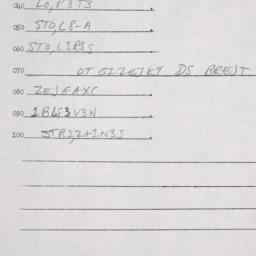 040 LO,P3T3.
050 STO,L8-A.
060 STO,L3R3S
070 OT GIZZEJKT DS RREJT
080 ZEJGAXC.
090 1BLF3V3N.
100 STRI,Z+1N3S.